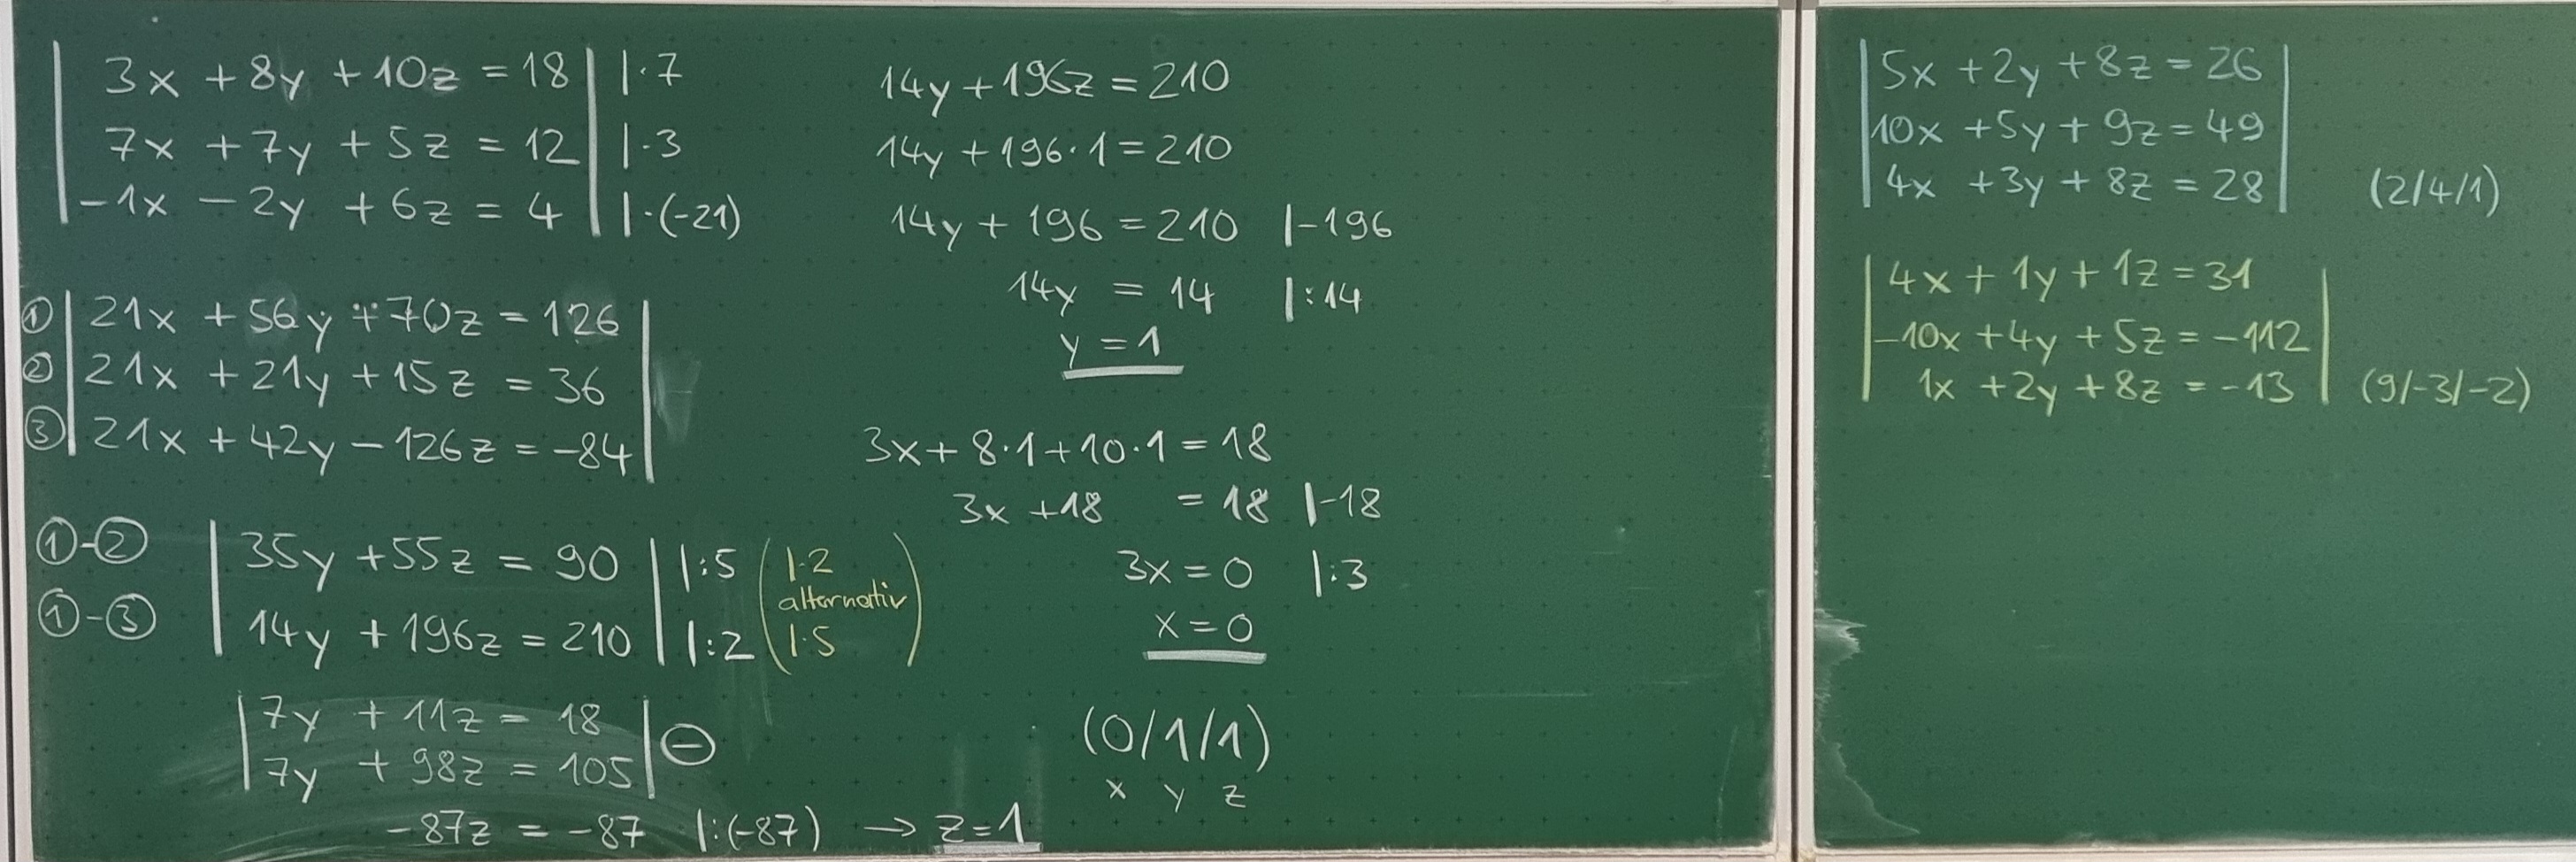 | 3x + 8y + 10z = 18 | |·7
| 7x + 7y + 5z = 12 | |·3
| -1x - 2y + 6z = 4 | |·(-21)
① | 21x + 56y + 70z = 126 |
② | 21x + 21y + 15z = 36 |
③ | 21x + 42y - 126z = -84 |
①-② | 35y + 55z = 90 | |:5 ( |·2
alternativ
①-③ | 14y + 196z = 210 | |:2 |·5 )
| 7y + 11z = 18 |
| 7y + 98z = 105 | ⊖
-87z = -87 |:(-87) → z = 1
14y + 196z = 210
14y + 196·1 = 210
14y + 196 = 210 |-196
14y = 14 |:14
y = 1
3x + 8·1 + 10·1 = 18
3x + 18 = 18 |-18
3x = 0 |:3
x = 0
(0/1/1)
x y z
| 5x + 2y + 8z = 26 |
| 10x + 5y + 9z = 49 |
| 4x + 3y + 8z = 28 | (2/4/1)
| 4x + 1y + 1z = 31 |
| -10x + 4y + 5z = -112 |
| 1x + 2y + 8z = -13 | (9/-3/-2)